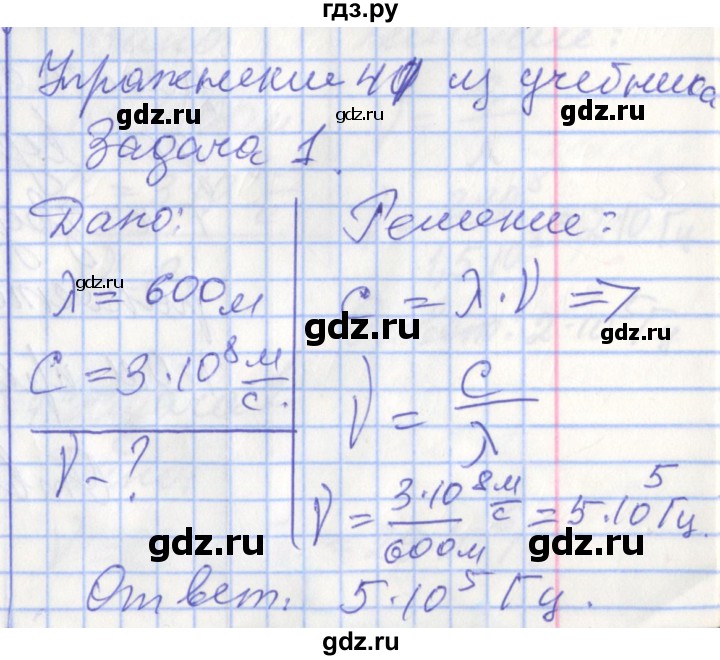 гдз.ру
Упражнение 41 из учебника
gdz.ru gdz.ru gdz.ru
Задача 1.
Дано:
λ = 600 м
C = 3·10⁸ м/с.
ν - ?
gdz.ru
Решение:
C = λ·ν =>
gdz.ru gdz.ru
ν = C/λ
ν = 3·10⁸ м/с / 600 м = 5·10⁵ Гц.
gdz.ru gdz.ru
Ответ: 5·10⁵ Гц.
гдз.ру